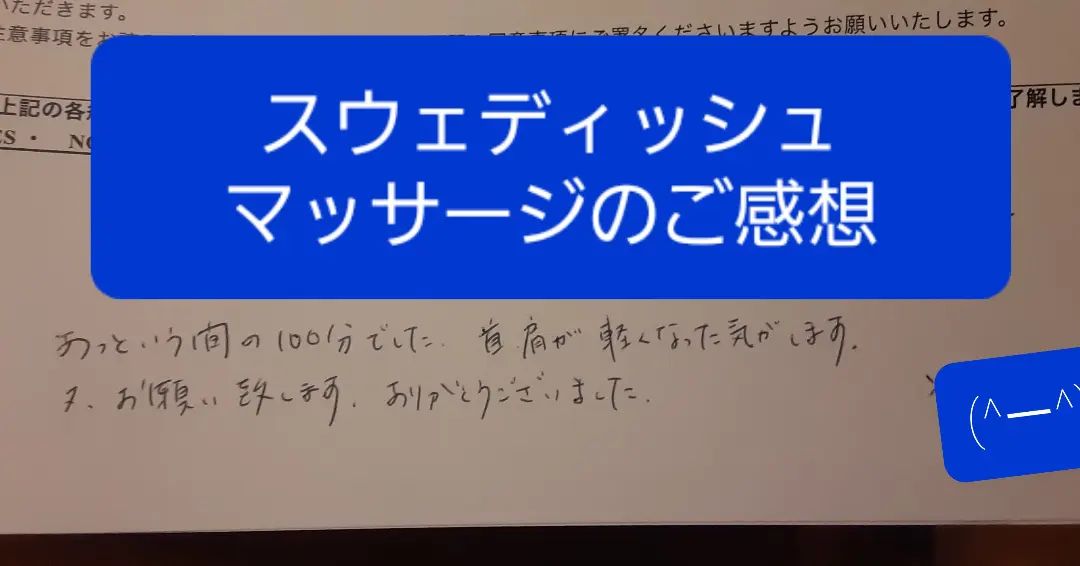 いただきます。
注意事項をお
同意事項にご署名くださいますようお願いいたします。
上記の各
了解しま
ES ・ NO
スウェディッシュ
マッサージのご感想
あっという間の100分でした. 首.肩が 軽くなった気がします.
又、お願い致します. ありがとうございました.
(^ー^)